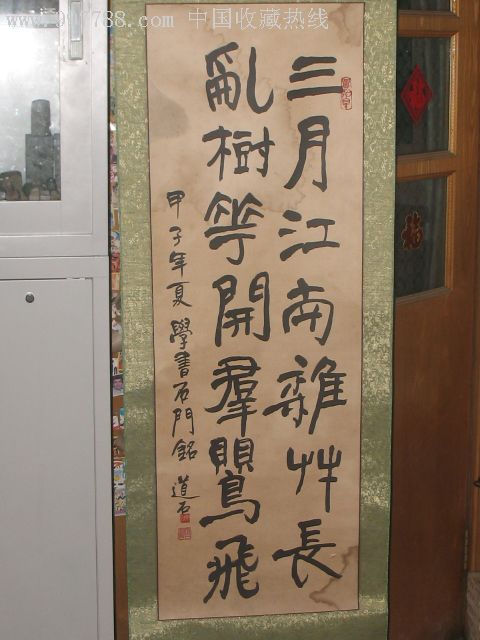 www.997788.com 中国收藏热线
三月江南雜艸長
亂樹花開羣鸎飛
甲子年夏 學書石門銘 道石
福
福